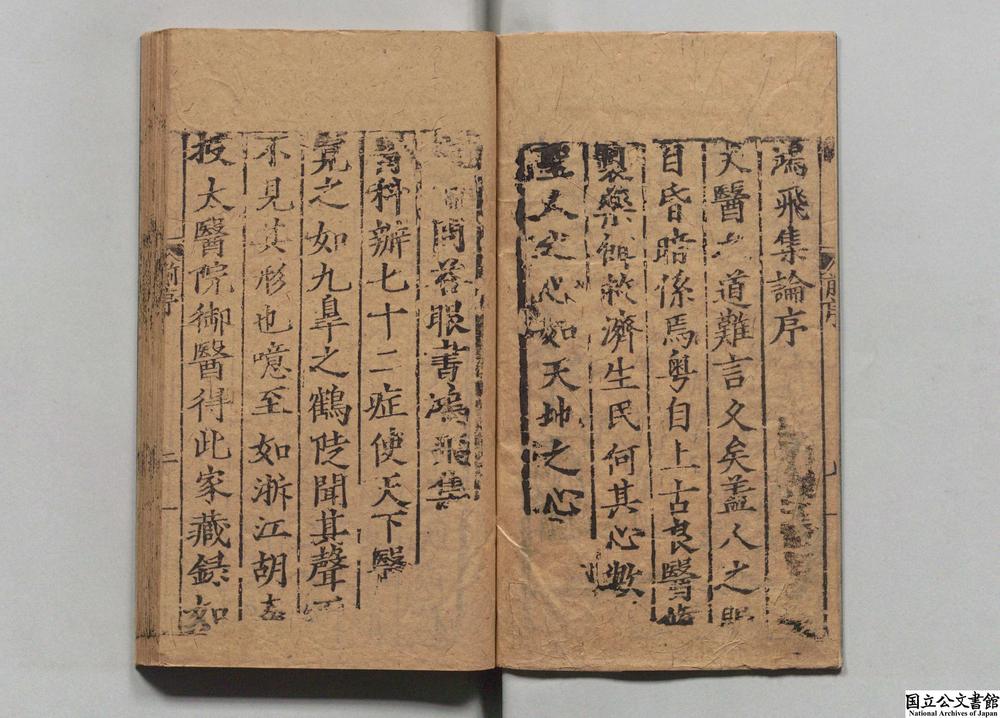 鴻飛集論序
夫醫之道難言久矣蓋人之眼
目昏暗係焉粤自上古良醫修
製藥餌救濟生民何其心歟
聖人之心如天地之心
問答眼書鴻飛集
眼科辦七十二症使天下醫
覓之如九臯之鶴徒聞其聲而
不見其形也噫至如浙江胡
授太醫院御醫得此家藏録如
前序
一
前序
二
国立公文書館
National Archives of Japan